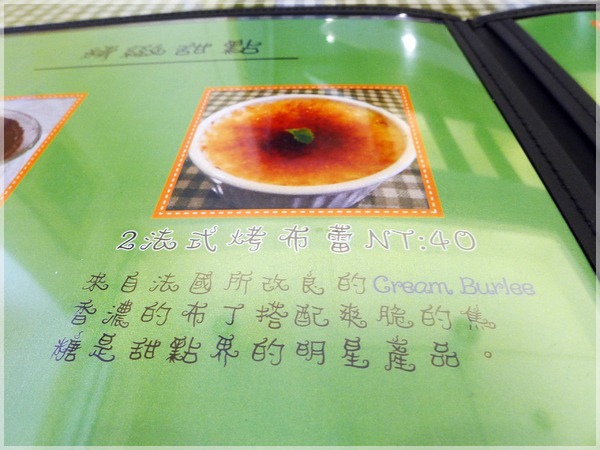 精緻甜點
2法式烤布蕾NT:40
來自法國所改良的Cream Burlee
香濃的布丁搭配爽脆的焦
糖是甜點界的明星產品。